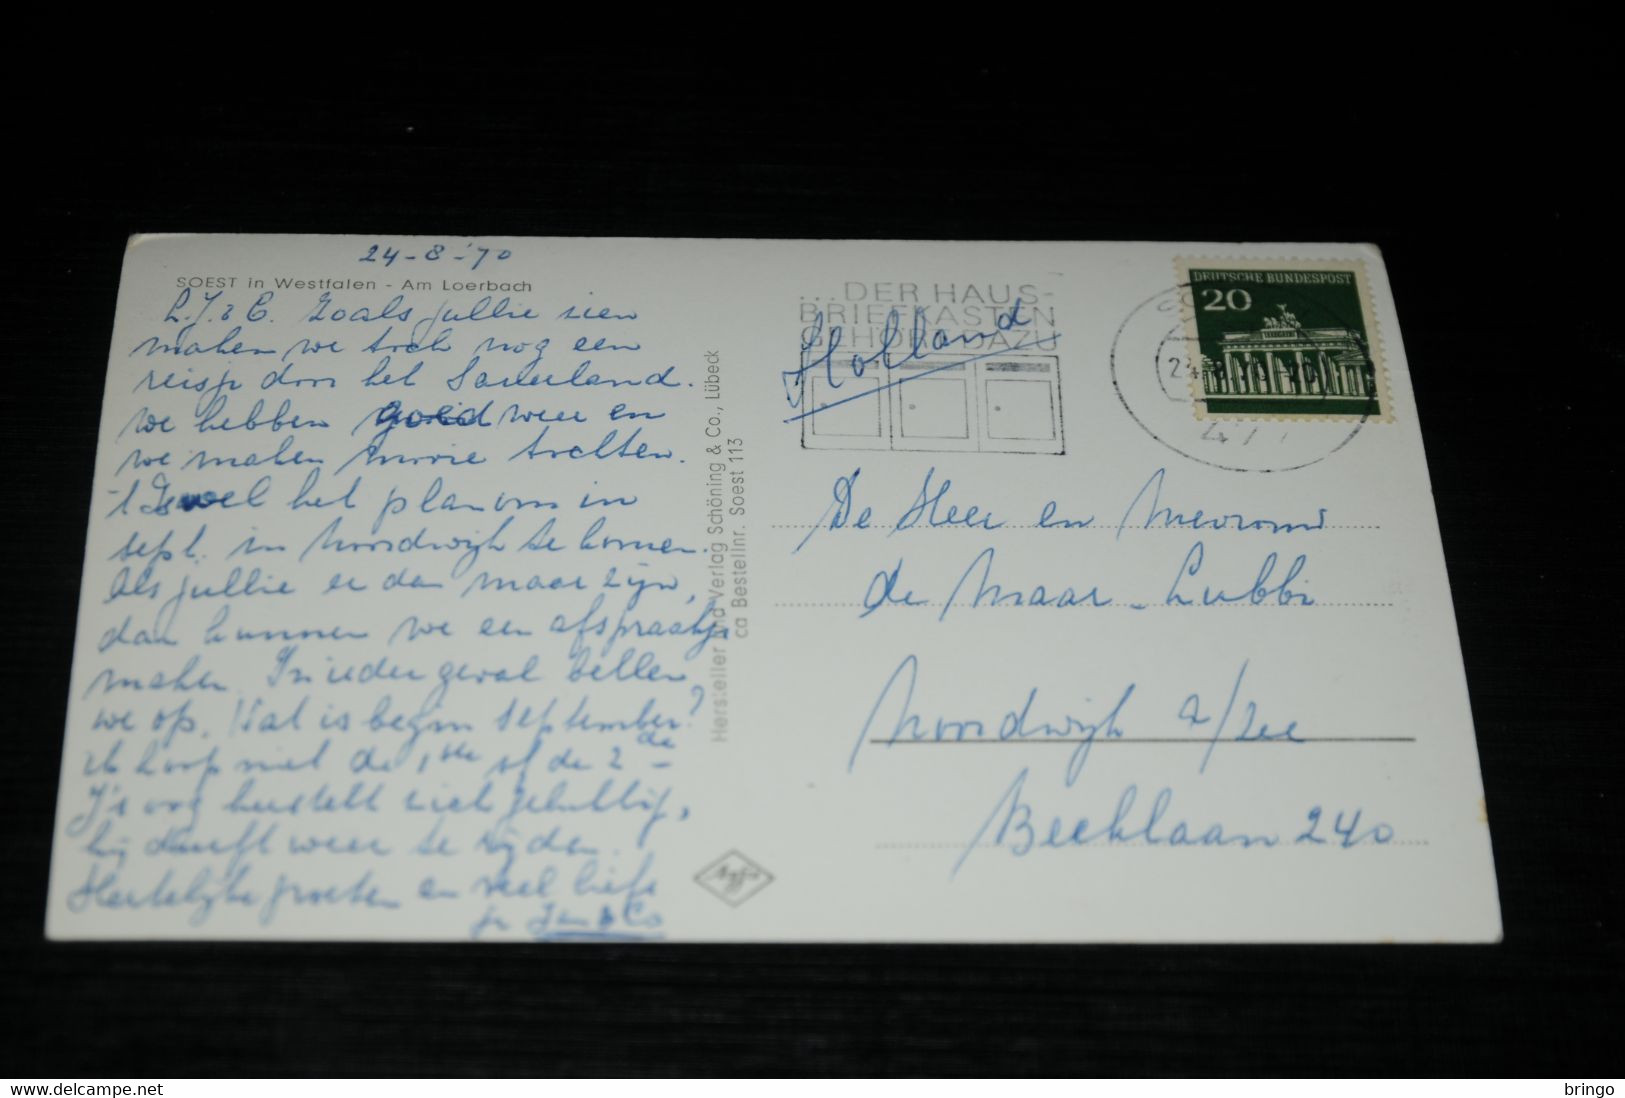 24-8-'70
SOEST in Westfalen - Am Loerbach
L.J. & C. Zoals jullie zien
maken we toch nog een
reisje door het Sauerland.
we hebben goed weer en
we maken mooie tochten.
't Is wel het plan om in
sept. in Noordwijk te komen.
Als jullie er dan maar zijn,
dan kunnen we een afspraakje
maken. In ieder geval bellen
we op. Wat is begin september?
ik hoop niet de 1ste of de 2de
J's oog herstelt zich gelukkig,
hij durft weer te rijden.
Hartelijke groeten en veel liefs
Jan & Co
Hersteller und Verlag Schöning & Co., Lübeck
ca Bestellnr. Soest 113
Agfa
... DER HAUS-
BRIEFKASTEN
GEHÖRT DAZU
Holland
DEUTSCHE BUNDESPOST
20
24.8.70-20
477
De Heer en Mevrouw
de Maar-Lubbi
Noordwijk a/Zee
Beeklaan 240
delcampe.net
bringo